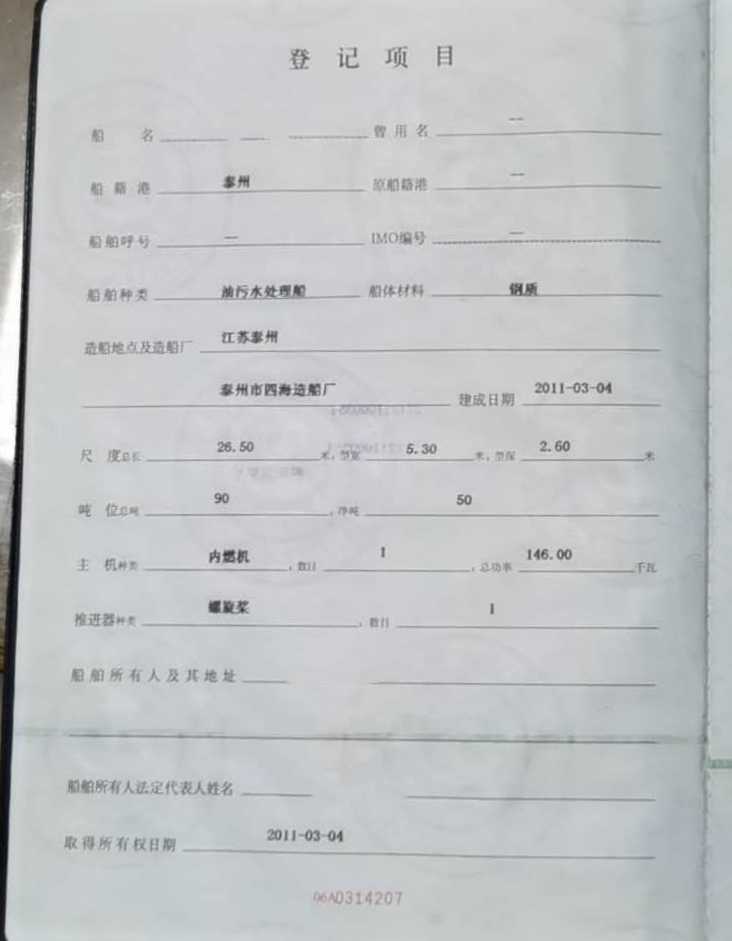 登记项目
船名 曾用名 --
船籍港 泰州 原船籍港 --
船舶呼号 -- IMO编号 --
船舶种类 油污水处理船 船体材料 钢质
造船地点及造船厂 江苏泰州
泰州市四海造船厂 建成日期 2011-03-04
尺度总长 26.50 米，型宽 5.30 米，型深 2.60 米
吨位总吨 90 ，净吨 50
主机种类 内燃机 ，数目 1 ，总功率 146.00 千瓦
推进器种类 螺旋桨 ，数目 1
船舶所有人及其地址
船舶所有人法定代表人姓名
取得所有权日期 2011-03-04
06A0314207